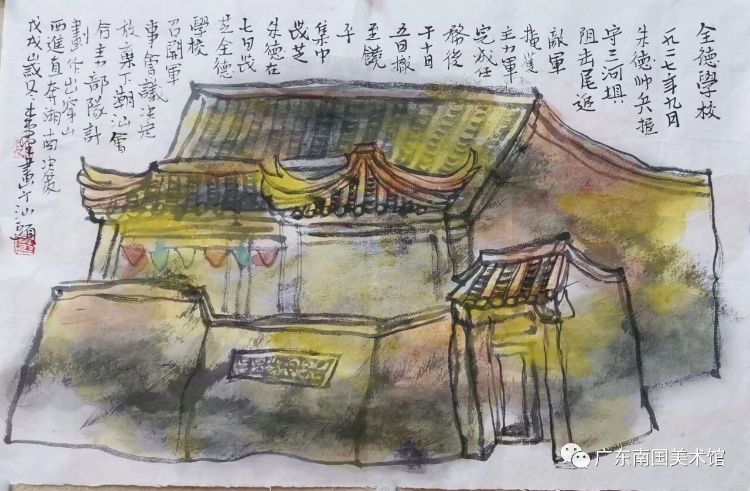 全德學校
一九二七年九月
朱德帥兵据
守三河垻
阻击尾追
敵軍
掩護
主力軍
完成任
務後
于十月
五日撤
至饒
平
集中
茂芝
朱德在
七日茂
芝全德
學校
召開軍
事會議決定
放棄下潮汕會
合主力部隊計
劃作出穿山
西進直奔湘南決策
戊戌歲又畫于汕頭
广东南国美术馆